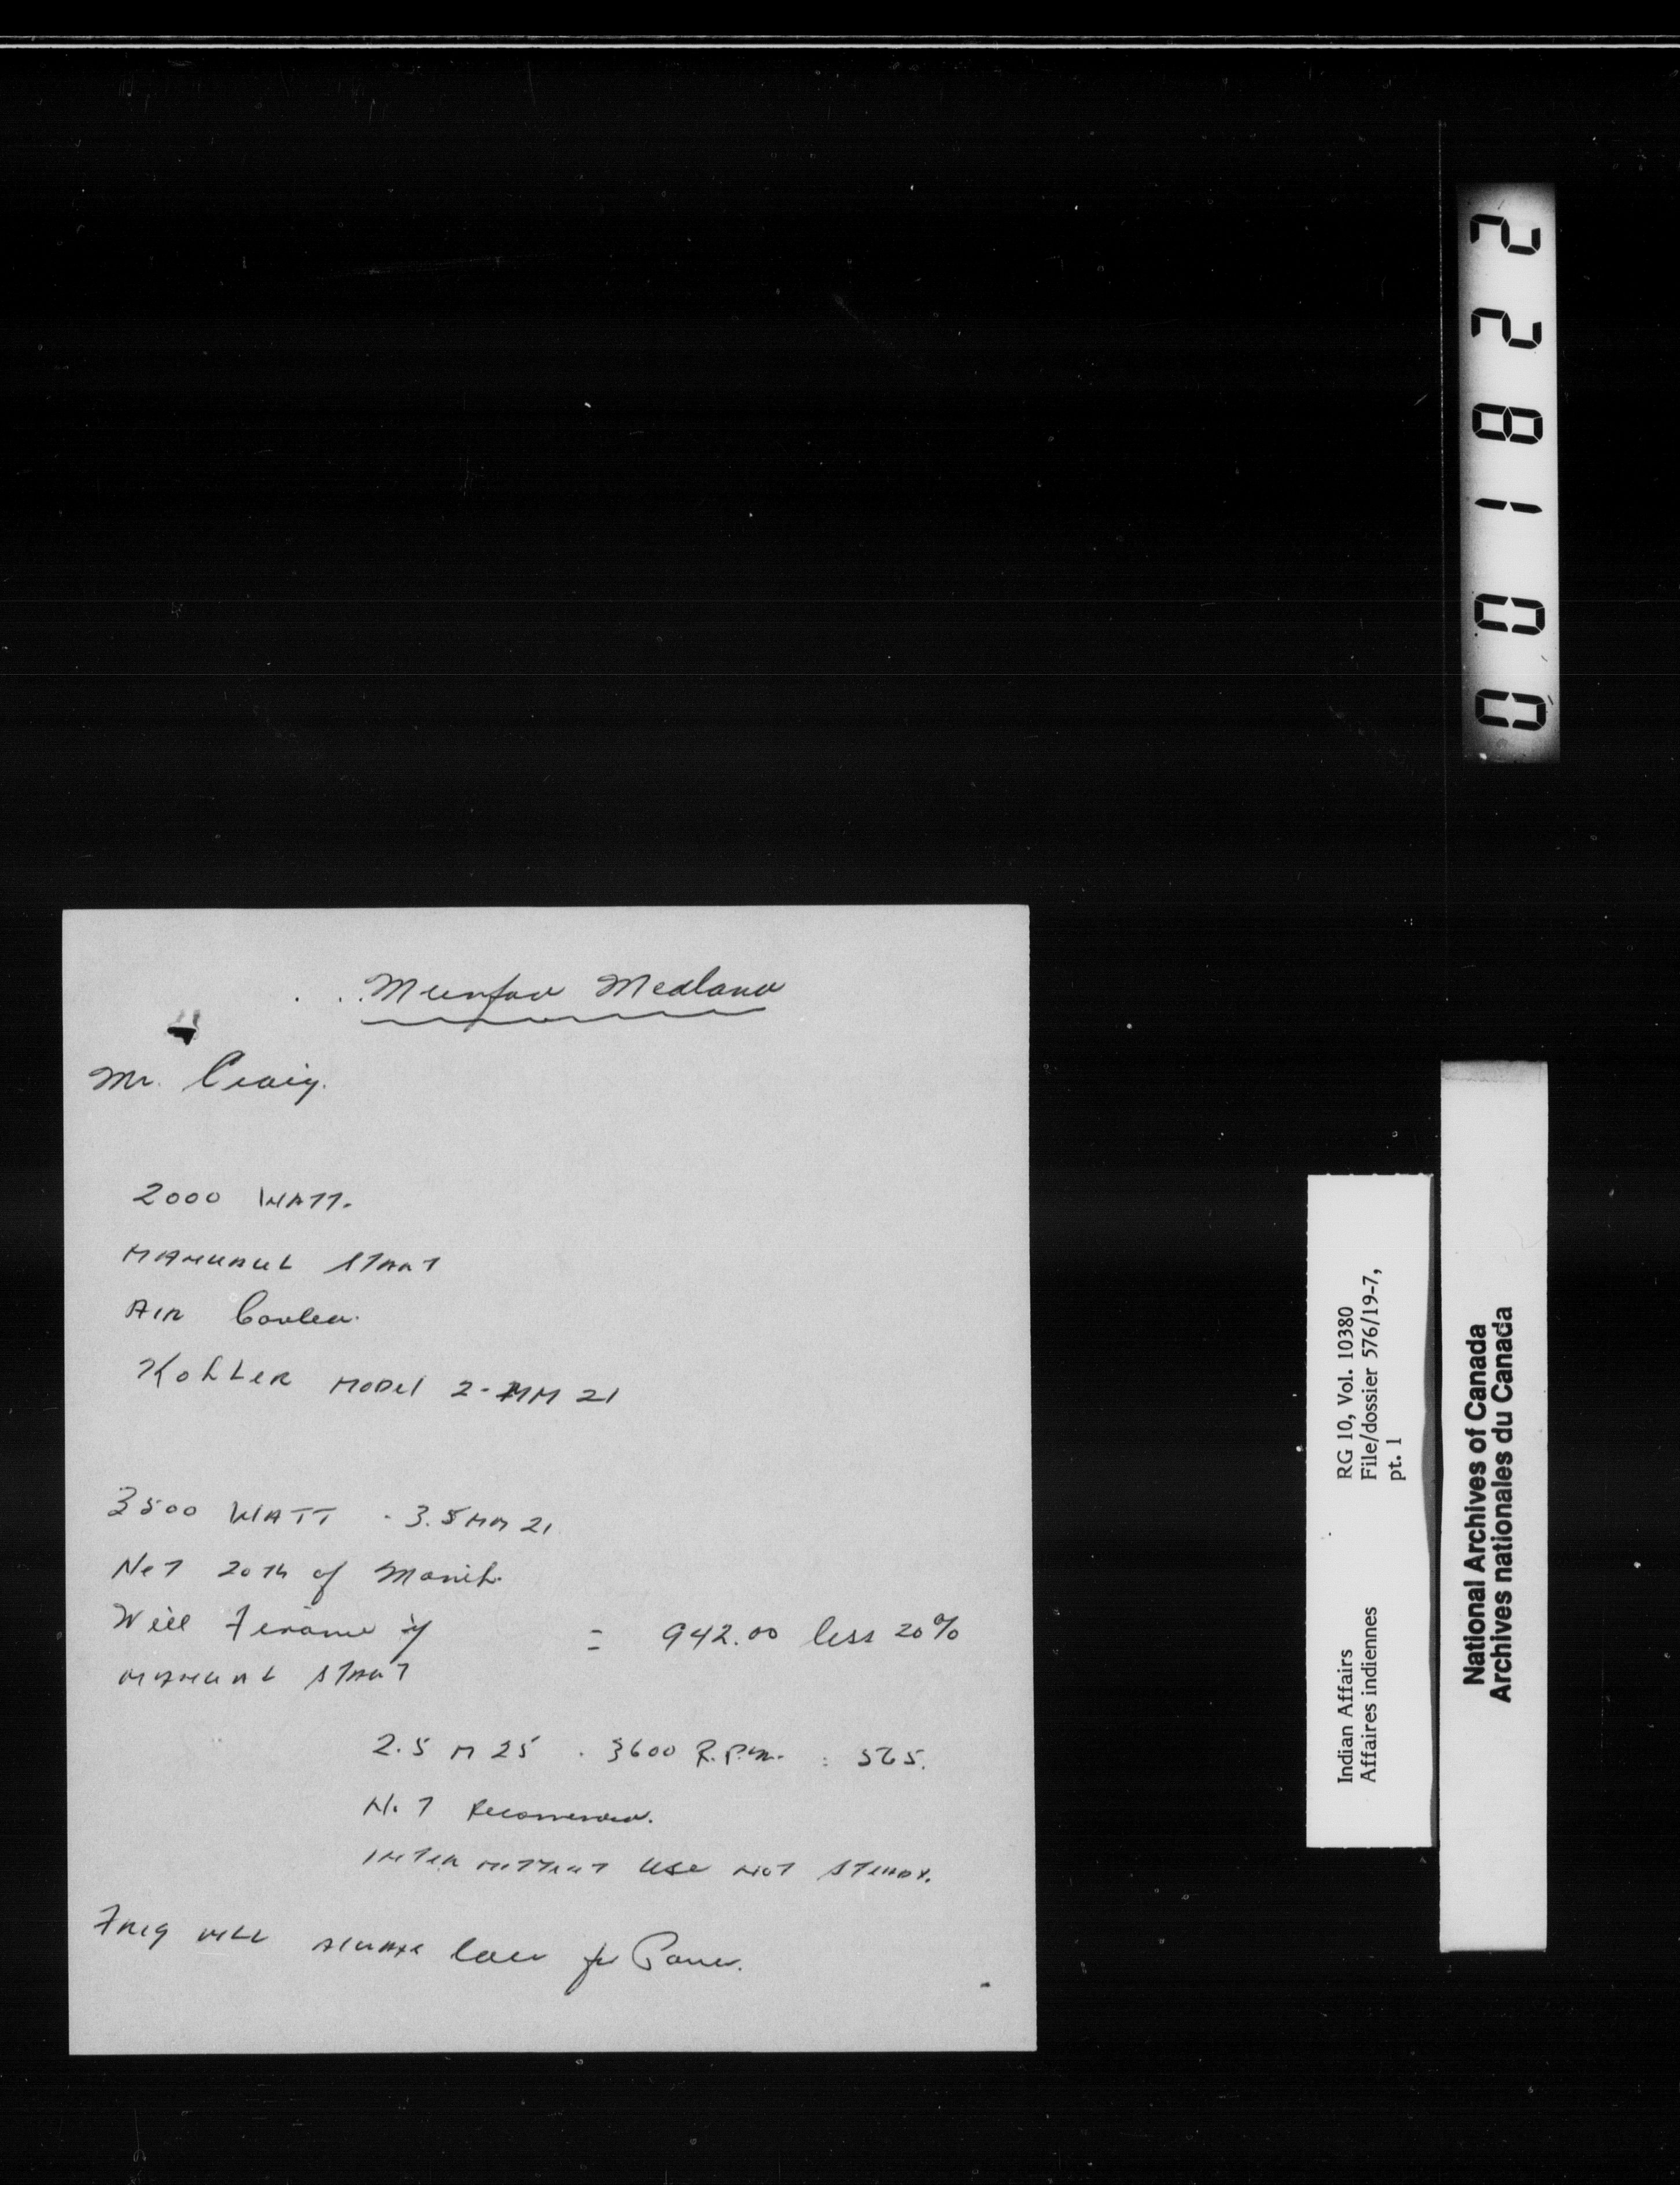 Mumford Medland
Mr. Craig.
2000 WATT.
MANUAUL START
AIR Cooled.
KOHLER MODEL 2-MM 21
3500 WATT - 3.5 MM 21
NET 20 TH of Month.
Will Finance if
= 942.00 less 20%
MANUAL START
2.5 M 25 . 3600 R.P.M. : 565.
NOT Recommended.
INTERMITTENT USE NOT STEADY.
WILL for Power.
001822
RG 10, Vol. 10380
File/dossier 576/19-7,
pt. 1
Indian Affairs
Affaires indiennes
National Archives of Canada
Archives nationales du Canada